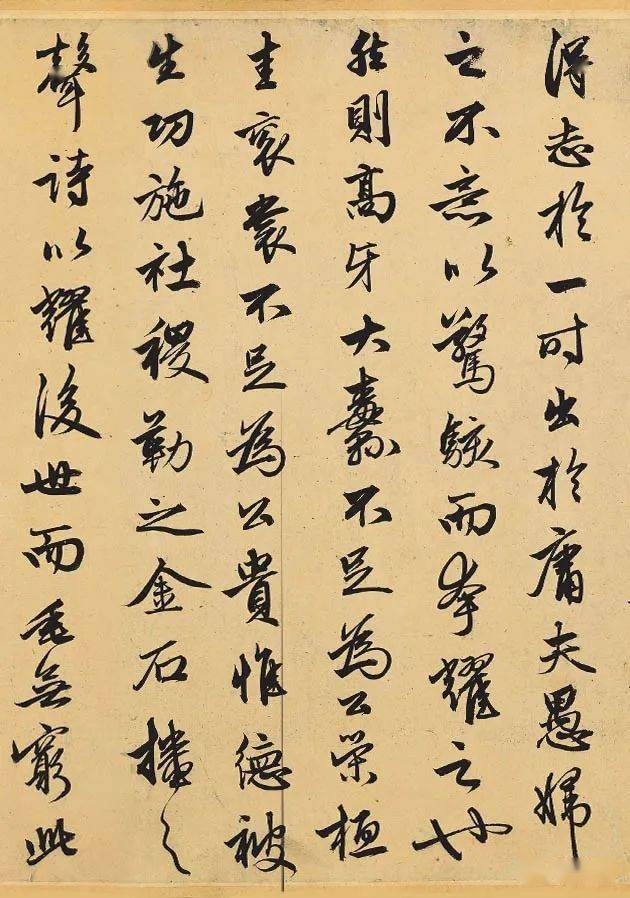 得志於一時出於庸夫愚婦
之不意以驚駭而夸耀之也
然則高牙大纛不足為公榮桓
圭袞裳不足為公貴惟德被
生功施社稷勒之金石播之
聲詩以耀後世而垂無窮此